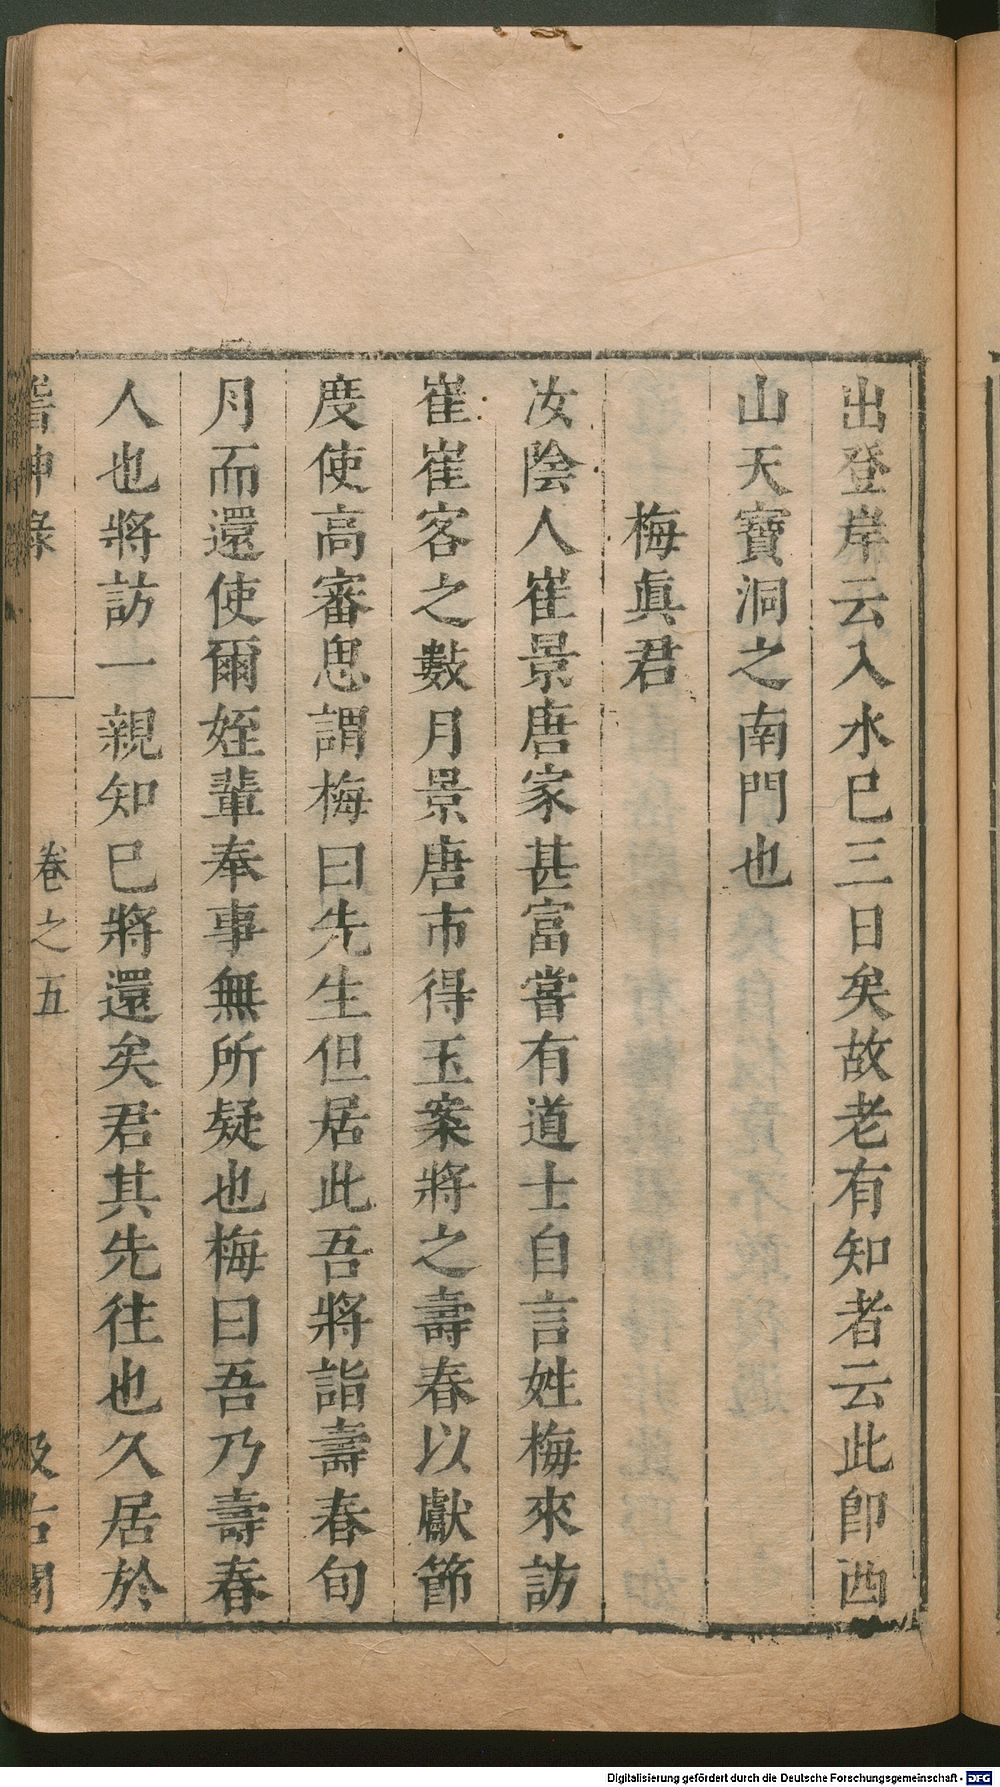 出登岸云入水已三日矣故老有知者云此即西
山天寶洞之南門也
梅眞君
汝陰人崔景唐家甚富嘗有道士自言姓梅來訪
崔崔客之數月景唐市得玉案將之壽春以獻節
度使高審思謂梅曰先生但居此吾將詣壽春旬
月而還使爾姪輩奉事無所疑也梅曰吾乃壽春
人也將訪一親知已將還矣君其先往也久居於
稽神錄
卷之五
汲古閣
Digitalisierung gefördert durch die Deutsche Forschungsgemeinschaft - DFG